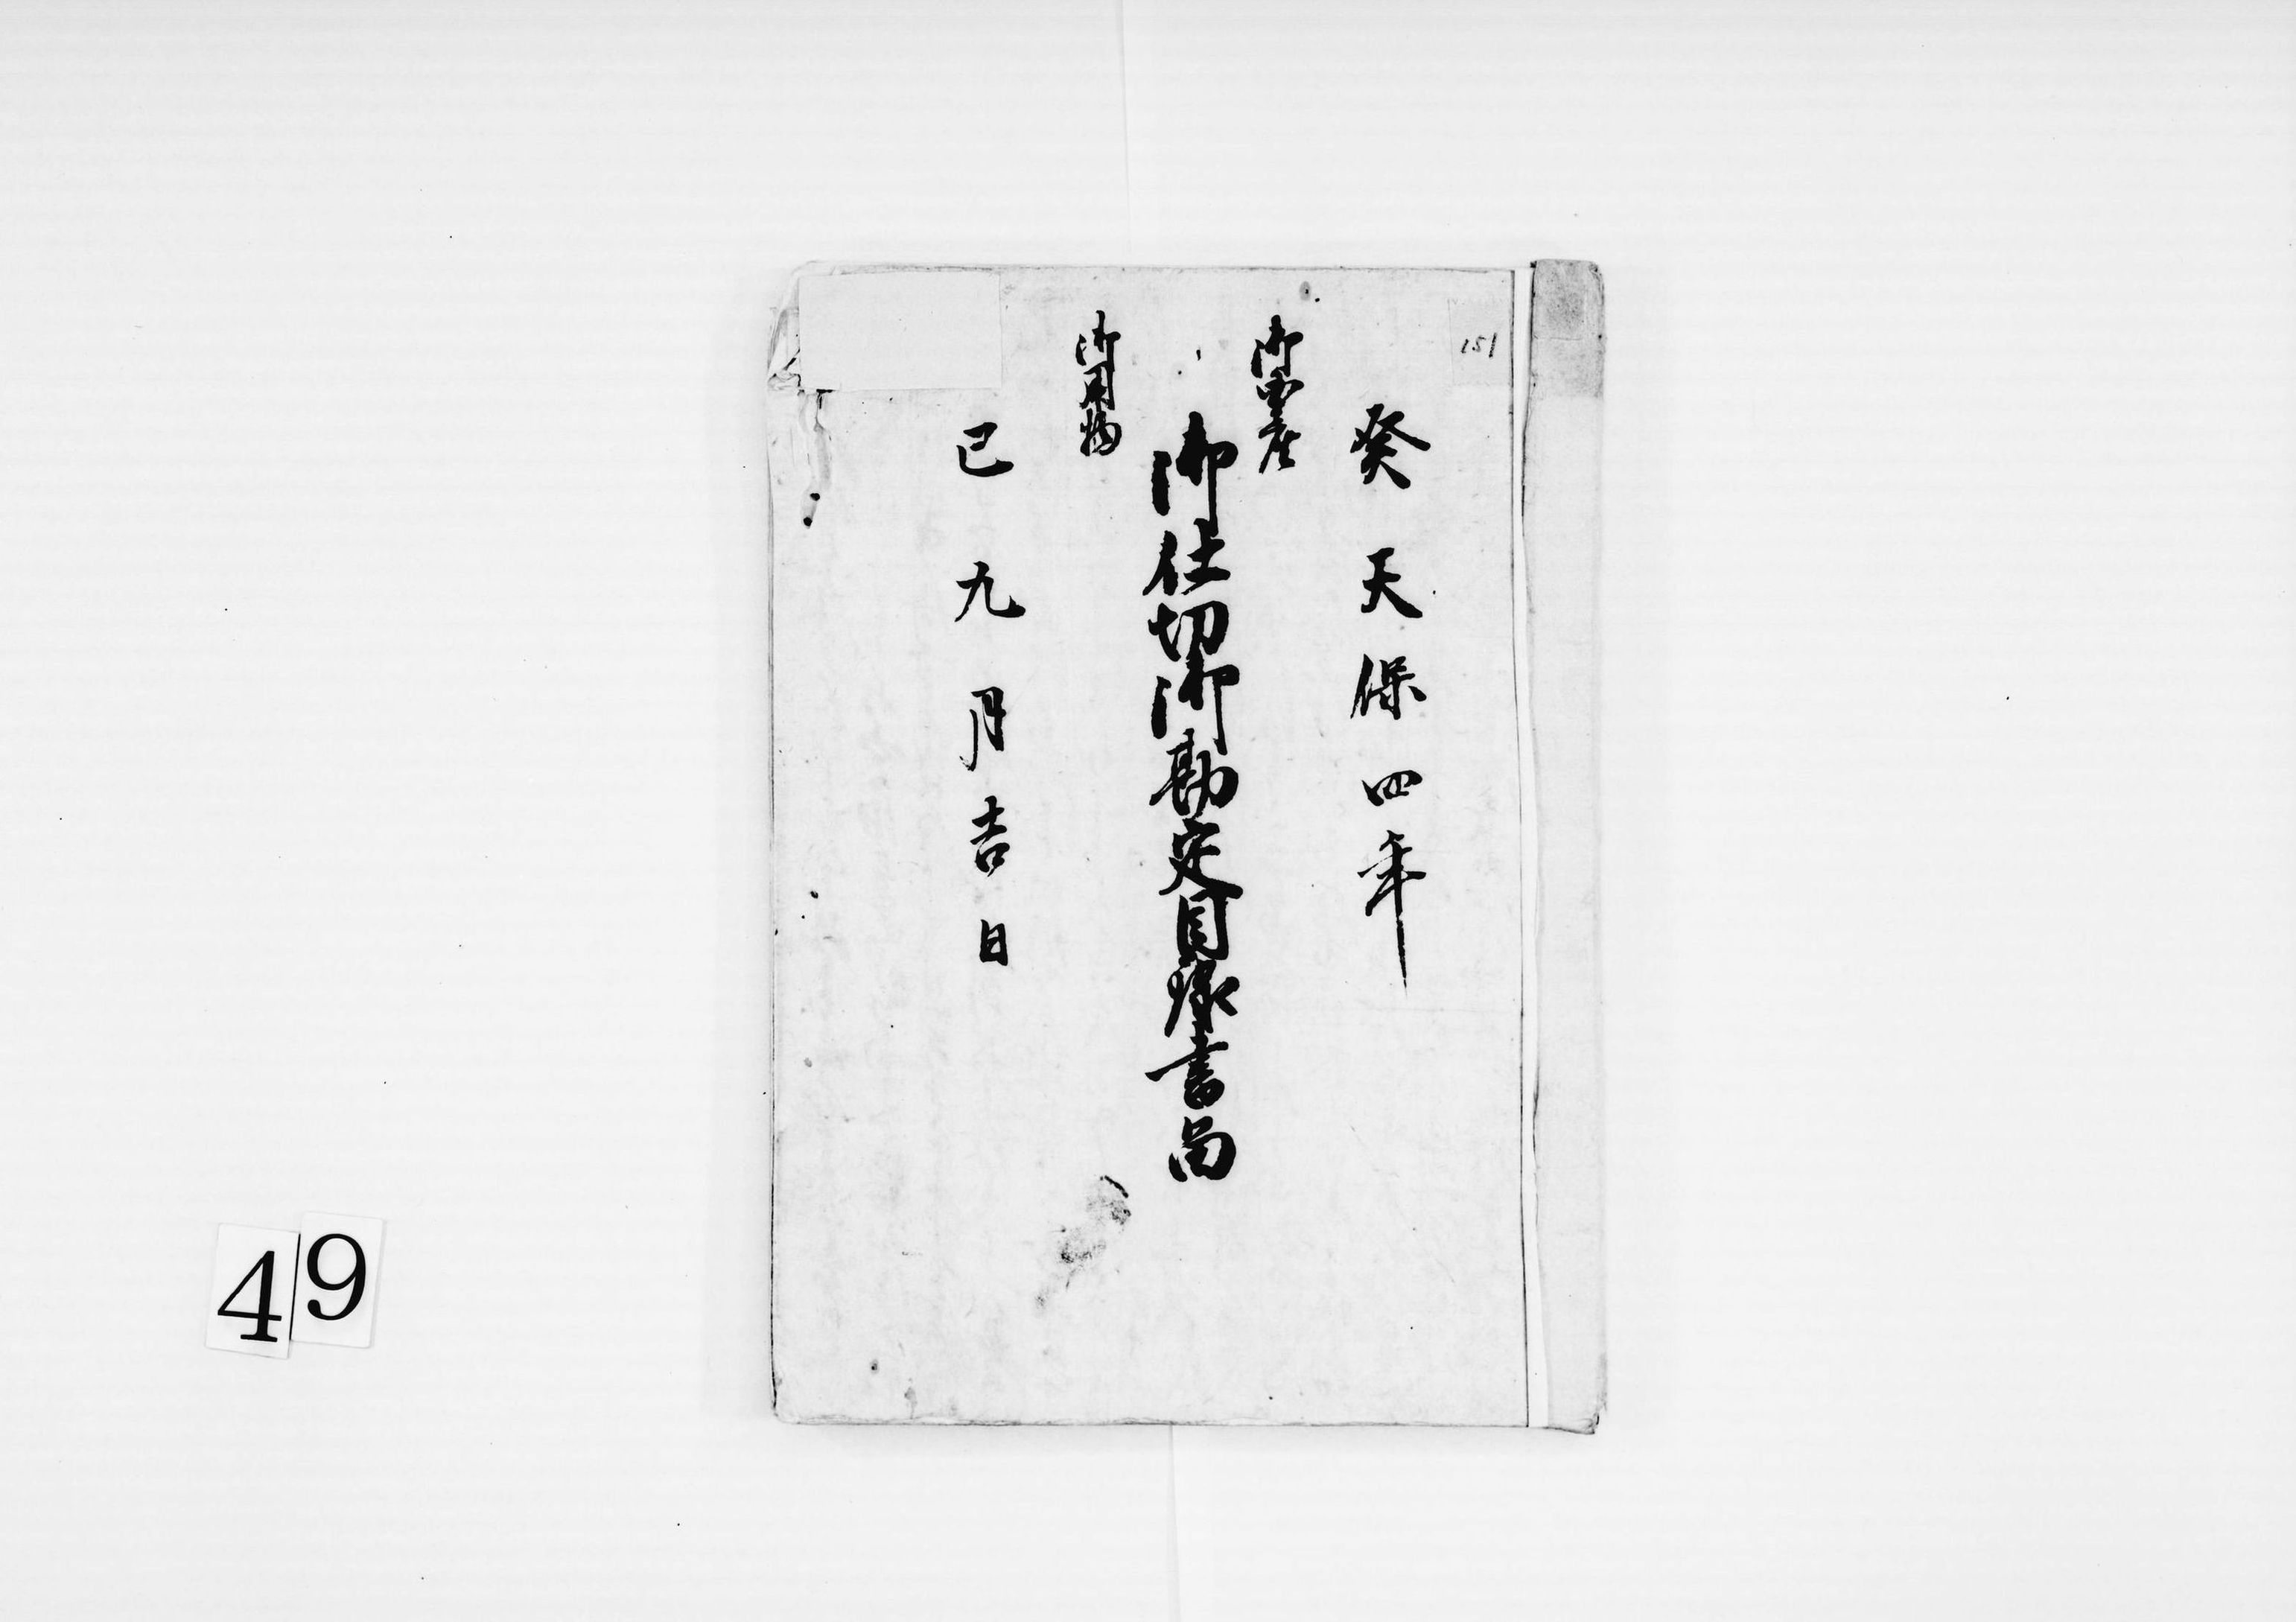 151
癸天保四年
御国産
御仕切御勘定目録書留
御用物
巳九月吉日
49